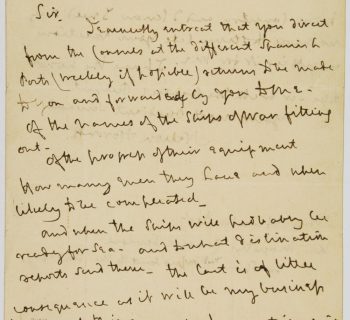 Sir.
I earnestly entreat that you direct
from the Consuls at the different Spanish
Ports (weekly if possible) returns to be made
to you and forwarded by you to me.
of the names of the Ships of War fitting
out.
of the progress of their equipment
how many men they have and when
likely to be compleated.
and when the Ships will probably be
ready for Sea. and to what destination
reports send them. the last is of little
consequence as it will be my business